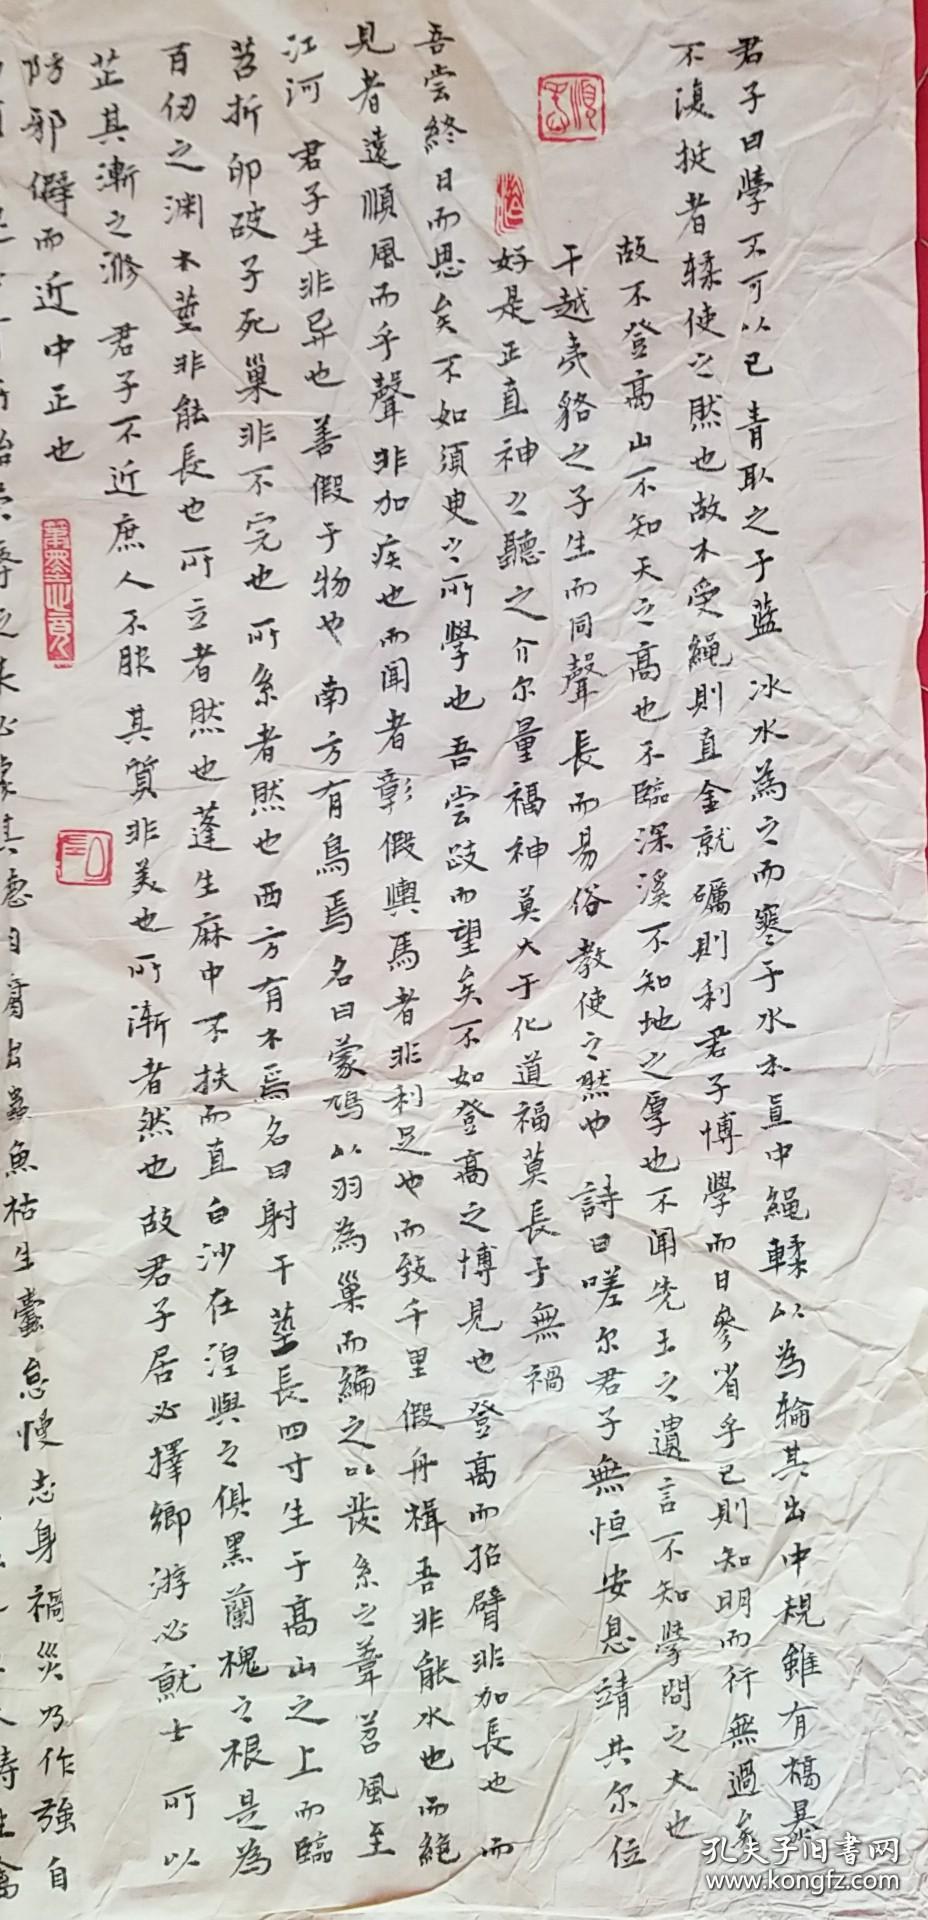 君子曰學不可以已青取之于藍冰水為之而寒于水木直中繩輮以為輪其出中規雖有槁暴
不復挺者輮使之然也故木受繩則直金就礪則利君子博學而日參省乎己則知明而行無過矣
故不登高山不知天之高也不臨深溪不知地之厚也不聞先王之遺言不知學問之大也
干越夷貉之子生而同聲長而易俗教使之然也詩曰嗟尔君子無恒安息靖共尔位
好是正直神之聽之介尔量福神莫大于化道福莫長于無禍
吾尝終日而思矣不如須臾之所學也吾尝跂而望矣不如登高之博見也登高而招臂非加長也而
見者遠順風而乎聲非加疾也而闻者彰假輿馬者非利足也而致千里假舟楫吾非能水也而絕
江河君子生非异也善假于物也南方有鳥焉名曰蒙鳩以羽為巢而編之以发系之葦苕風至
苕折卵破子死巢非不完也所系者然也西方有木焉名曰射干莖長四寸生于高山之上而臨
百仞之渊木莖非能長也所立者然也蓬生麻中不扶而直白沙在涅與之俱黑蘭槐之根是為
芷其漸之滫君子不近庶人不服其質非美也所漸者然也故君子居必擇鄉游必就士所以
防邪僻而近中正也
之來必象其德肉腐出蟲魚枯生蠹怠慢志身禍災乃作强自
孔夫子旧书网
www.kongfz.com